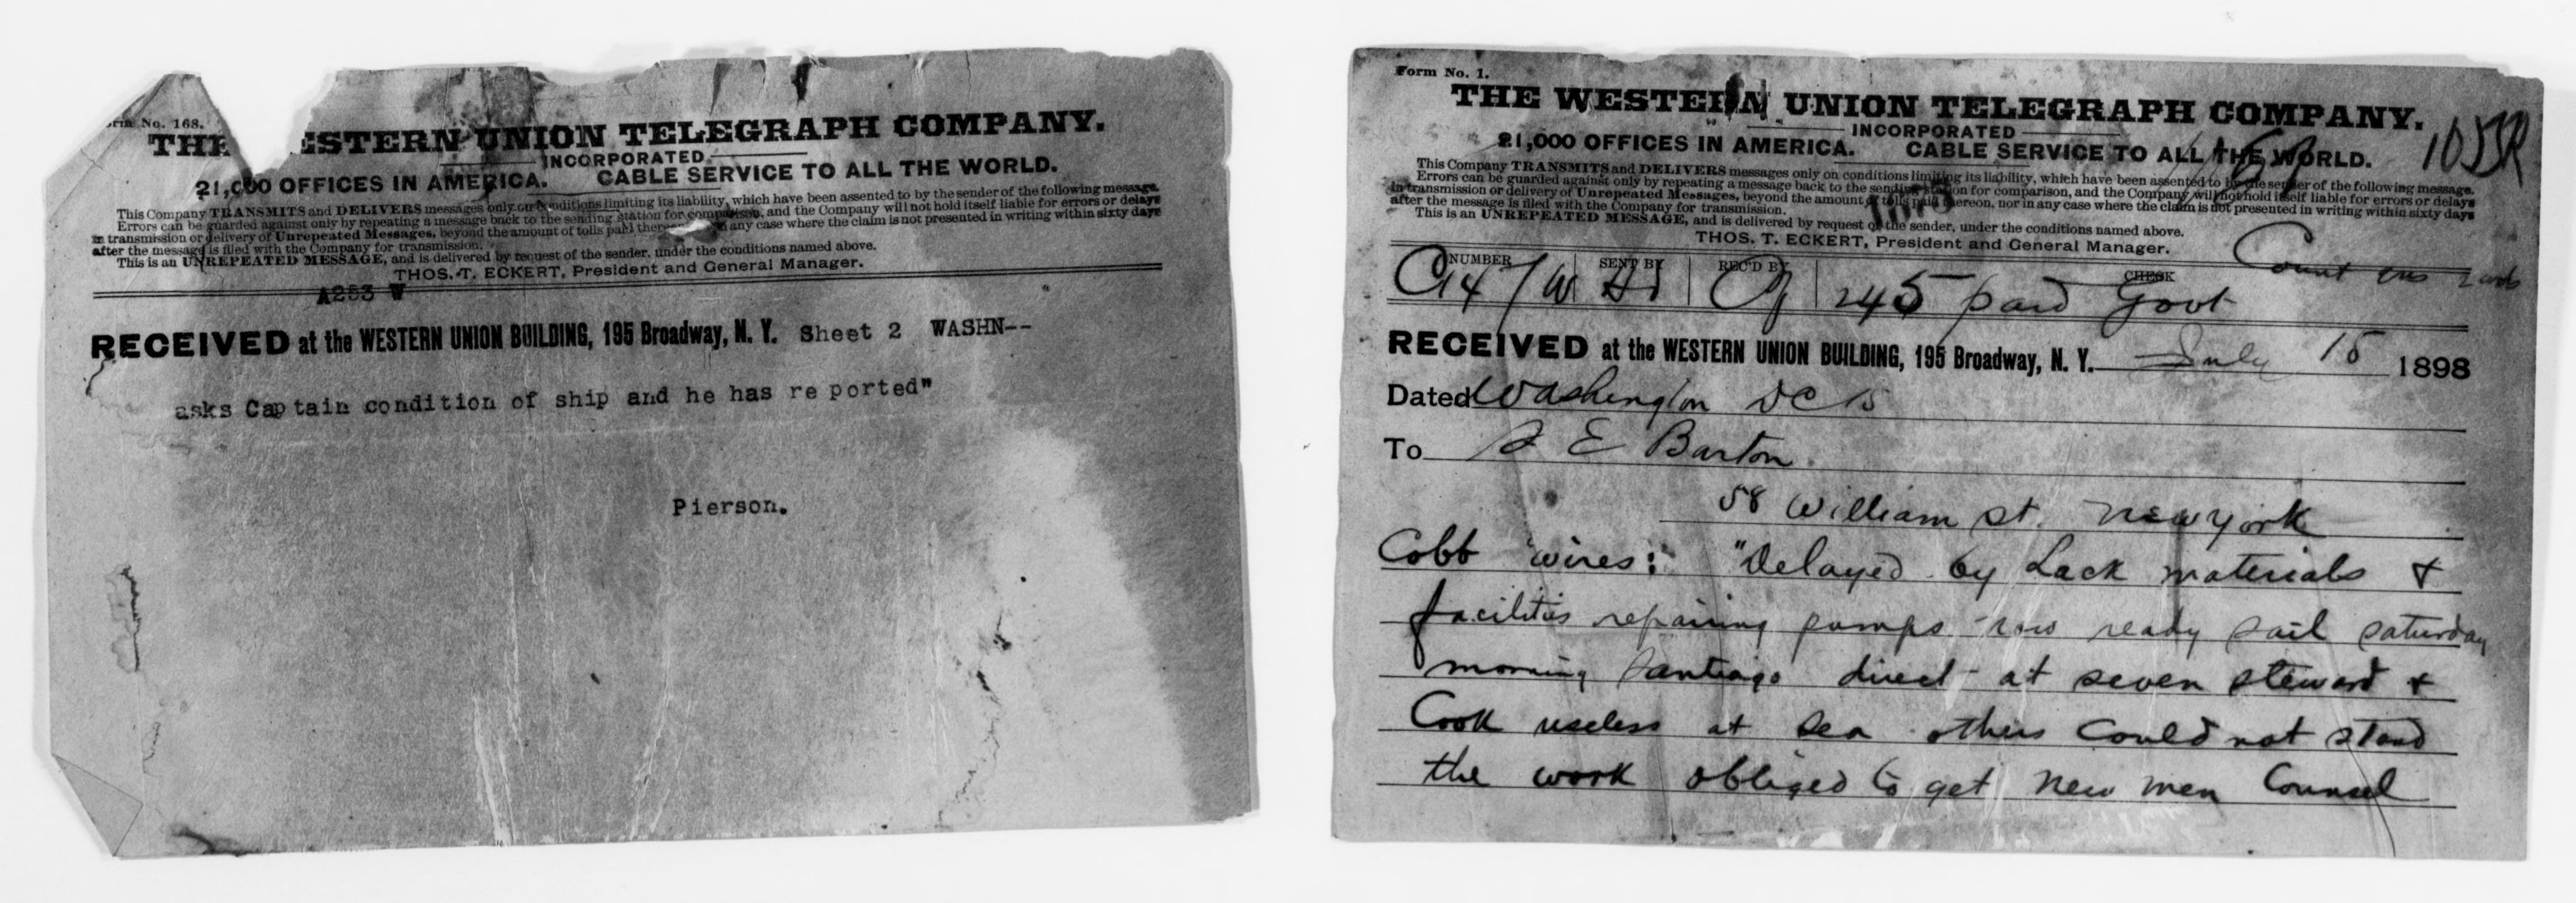 Form No. 168.
THE WESTERN UNION TELEGRAPH COMPANY.
INCORPORATED
21,000 OFFICES IN AMERICA. CABLE SERVICE TO ALL THE WORLD.
This Company TRANSMITS and DELIVERS messages only on conditions limiting its liability, which have been assented to by the sender of the following message.
Errors can be guarded against only by repeating a message back to the sending station for comparison, and the Company will not hold itself liable for errors or delays
in transmission or delivery of Unrepeated Messages, beyond the amount of tolls paid thereon, nor in any case where the claim is not presented in writing within sixty days
after the message is filed with the Company for transmission.
This is an UNREPEATED MESSAGE, and is delivered by request of the sender, under the conditions named above.
THOS. T. ECKERT, President and General Manager.
A253 W
RECEIVED at the WESTERN UNION BUILDING, 195 Broadway, N. Y. Sheet 2 WASHN--
asks Captain condition of ship and he has re ported"
Pierson.
Form No. 1.
THE WESTERN UNION TELEGRAPH COMPANY.
INCORPORATED
21,000 OFFICES IN AMERICA. CABLE SERVICE TO ALL THE WORLD.
This Company TRANSMITS and DELIVERS messages only on conditions limiting its liability, which have been assented to by the sender of the following message.
Errors can be guarded against only by repeating a message back to the sending station for comparison, and the Company will not hold itself liable for errors or delays
in transmission or delivery of Unrepeated Messages, beyond the amount of tolls paid thereon, nor in any case where the claim is not presented in writing within sixty days
after the message is filed with the Company for transmission.
This is an UNREPEATED MESSAGE, and is delivered by request of the sender, under the conditions named above.
THOS. T. ECKERT, President and General Manager.
NUMBER SENT BY REC'D BY CHECK
245 paid Govt Count
RECEIVED at the WESTERN UNION BUILDING, 195 Broadway, N. Y. July 15 1898
Dated Washington DC 15
To S E Barton
58 William st. New York
Cobb wires: "Delayed by Lack materials &
facilities repairing pumps now ready sail saturday
morning Santiago direct at seven steward &
Cook useless at sea others Could not stand
the work obliged to get new men Counsel